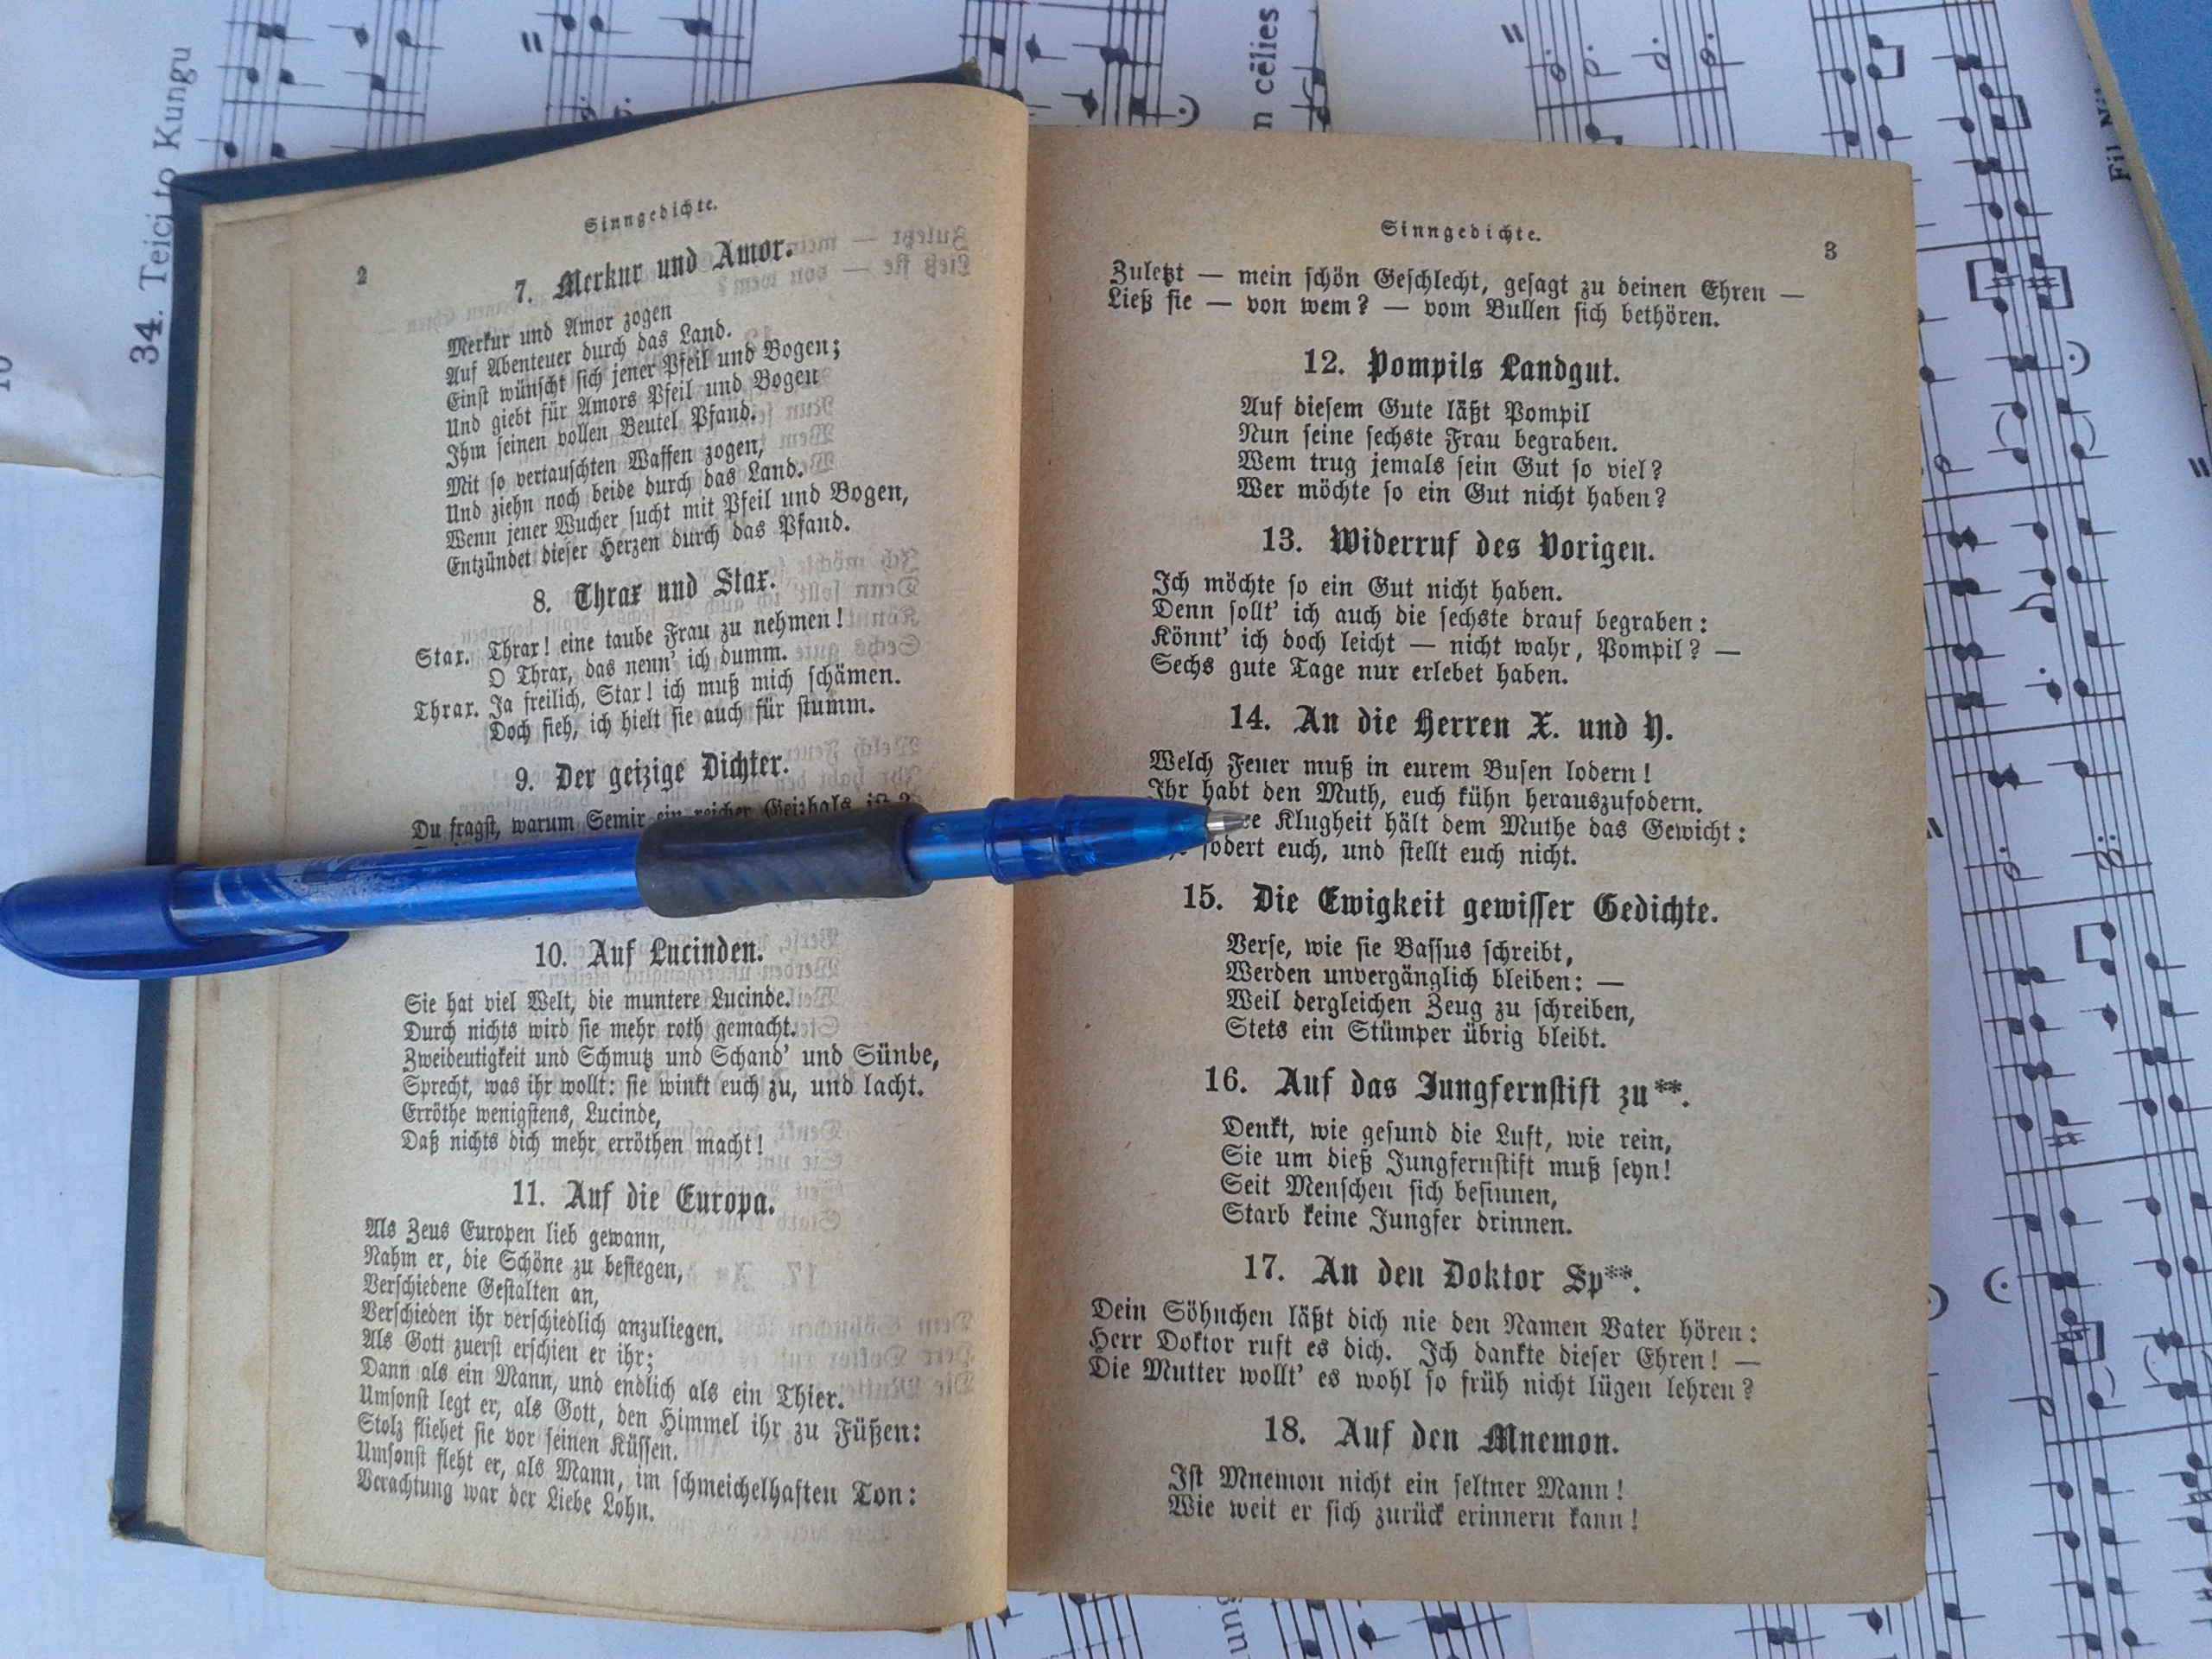 34. Teici to Kungu
n cēlies
Sinngedichte.
2
7. Merkur und Amor.
Merkur und Amor zogen
Auf Abenteuer durch das Land.
Einst wünscht sich jener Pfeil und Bogen;
Und giebt für Amors Pfeil und Bogen
Ihm seinen vollen Beutel Pfand.
Mit so vertauschten Waffen zogen,
Und ziehn noch beide durch das Land.
Wenn jener Wucher sucht mit Pfeil und Bogen,
Entzündet dieser Herzen durch das Pfand.
8. Thrax und Stax.
Stax. Thrax! eine taube Frau zu nehmen!
O Thrax, das nenn' ich dumm.
Thrax. Ja freilich, Stax! ich muß mich schämen.
Doch sieh, ich hielt sie auch für stumm.
9. Der geizige Dichter.
Du fragst, warum Semir ein reicher Geizhals ist?
10. Auf Lucinden.
Sie hat viel Welt, die muntere Lucinde.
Durch nichts wird sie mehr roth gemacht.
Zweideutigkeit und Schmutz und Schand' und Sünde,
Sprecht, was ihr wollt: sie winkt euch zu, und lacht.
Erröthe wenigstens, Lucinde,
Daß nichts dich mehr erröthen macht!
11. Auf die Europa.
Als Zeus Europen lieb gewann,
Nahm er, die Schöne zu besiegen,
Verschiedene Gestalten an,
Verschieden ihr verschiedlich anzuliegen.
Als Gott zuerst erschien er ihr;
Dann als ein Mann, und endlich als ein Thier.
Umsonst legt er, als Gott, den Himmel ihr zu Füßen:
Stolz fliehet sie vor seinen Küssen.
Umsonst fleht er, als Mann, im schmeichelhaften Ton:
Verachtung war der Liebe Lohn.
Sinngedichte.
3
Zuletzt — mein schön Geschlecht, gesagt zu deinen Ehren —
Ließ sie — von wem? — vom Bullen sich bethören.
12. Pompils Landgut.
Auf diesem Gute läßt Pompil
Nun seine sechste Frau begraben.
Wem trug jemals sein Gut so viel?
Wer möchte so ein Gut nicht haben?
13. Widerruf des Vorigen.
Ich möchte so ein Gut nicht haben.
Denn sollt' ich auch die sechste drauf begraben:
Könnt' ich doch leicht — nicht wahr, Pompil? —
Sechs gute Tage nur erlebet haben.
14. An die Herren X. und Y.
Welch Feuer muß in eurem Busen lodern!
Ihr habt den Muth, euch kühn herauszufodern.
Klugheit hält dem Muthe das Gewicht:
fodert euch, und stellt euch nicht.
15. Die Ewigkeit gewisser Gedichte.
Verse, wie sie Bassus schreibt,
Werden unvergänglich bleiben: —
Weil dergleichen Zeug zu schreiben,
Stets ein Stümper übrig bleibt.
16. Auf das Jungfernstift zu **.
Denkt, wie gesund die Luft, wie rein,
Sie um dieß Jungfernstift muß seyn!
Seit Menschen sich besinnen,
Starb keine Jungfer drinnen.
17. An den Doktor Sp**.
Dein Söhnchen läßt dich nie den Namen Vater hören:
Herr Doktor ruft es dich. Ich dankte dieser Ehren! —
Die Mutter wollt' es wohl so früh nicht lügen lehren?
18. Auf den Mnemon.
Ist Mnemon nicht ein seltner Mann!
Wie weit er sich zurück erinnern kann!